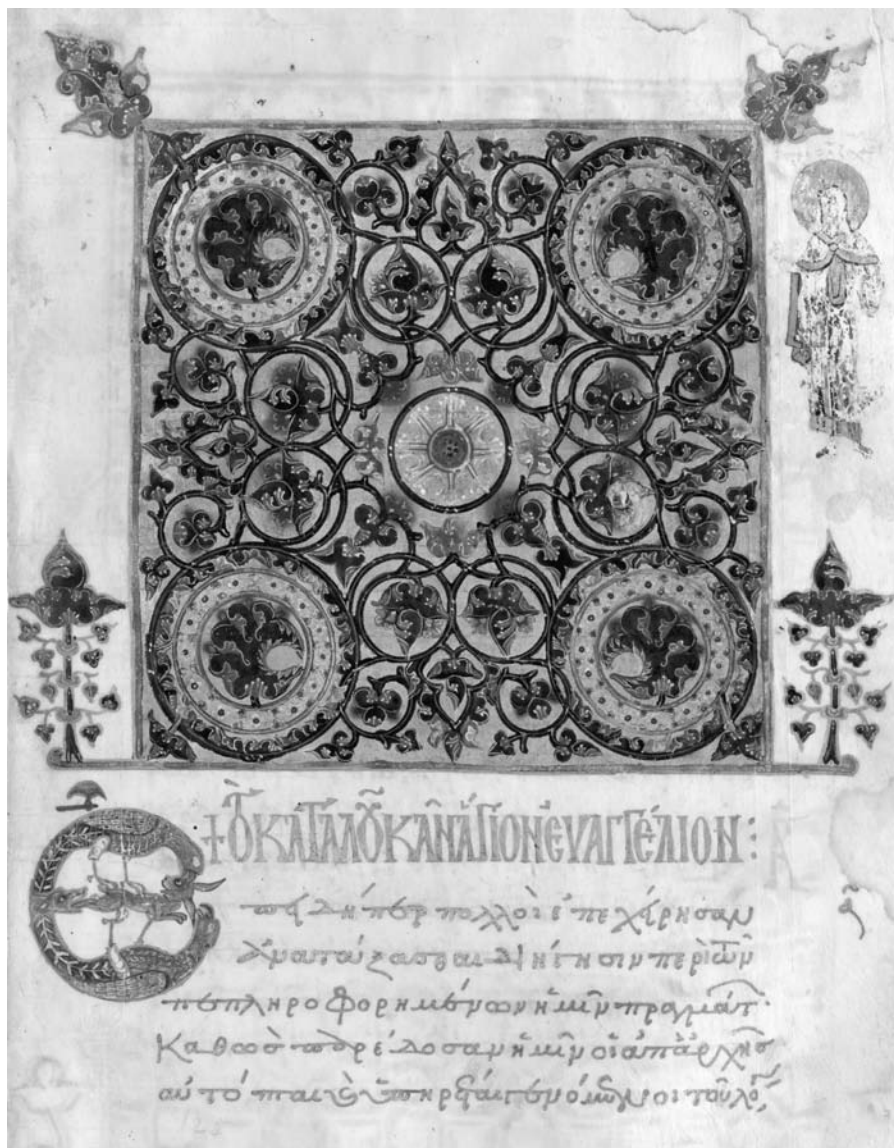 +Τὸ ΚΑΤᾺ ΛΟΥΚᾶΝ ἍΓΙΟΝ ΕΥΑΓΓΈΛΙΟΝ:
Επειδήπερ πολλοὶ ἐπεχείρησαν
ἀνατάξασθαι διήγησιν περὶ τῶν
πεπληροφορημένων ἡμῖν πραγμάτ.
Καθὼς παρέδοσαν ἡμῖν οἱ ἀπ' ἀρχῆς
αὐτόπται καὶ ὑπηρέται γενόμενοι τοῦ λό,